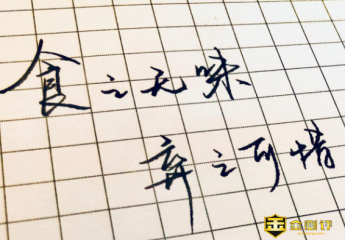 食之无味
弃之可惜
金
金圆评